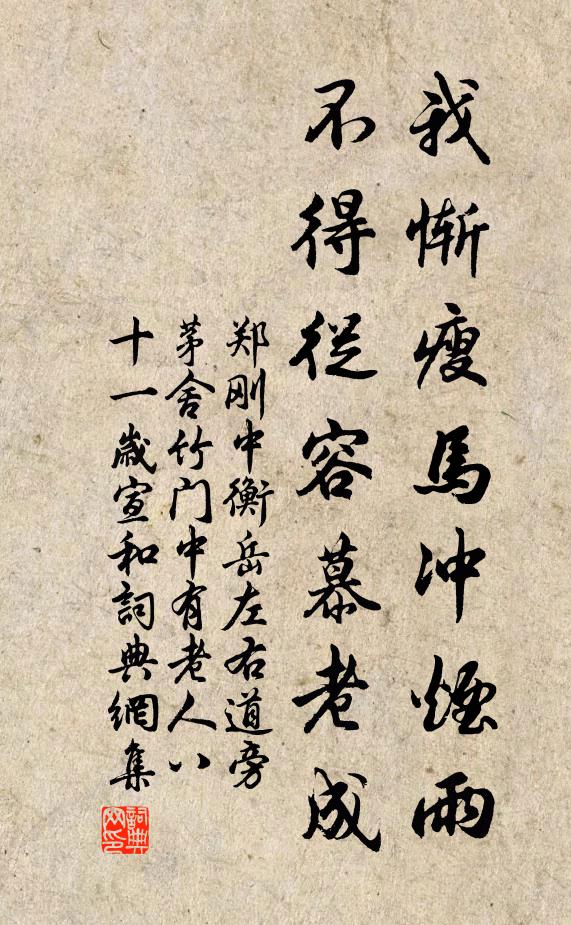 我惭瘦馬冲煙雨
不得從容慕老成
郑刚中衡岳左右道旁
茅舍竹门中有老人八
十一歲宣和詞典網集
詞典
网印